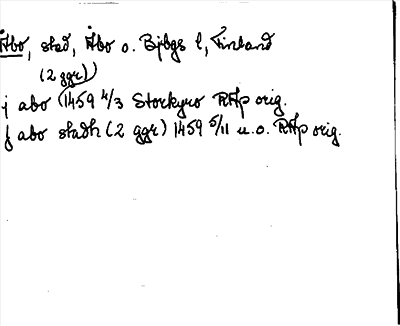 Åbo, stad, Åbo o. Bjbgs l, Finland
(2 ggr)
j abo (1459 4/3 Storkyro RAp orig.
j abo stadh (2 ggr) 1459 5/11 u.o. RAp orig.